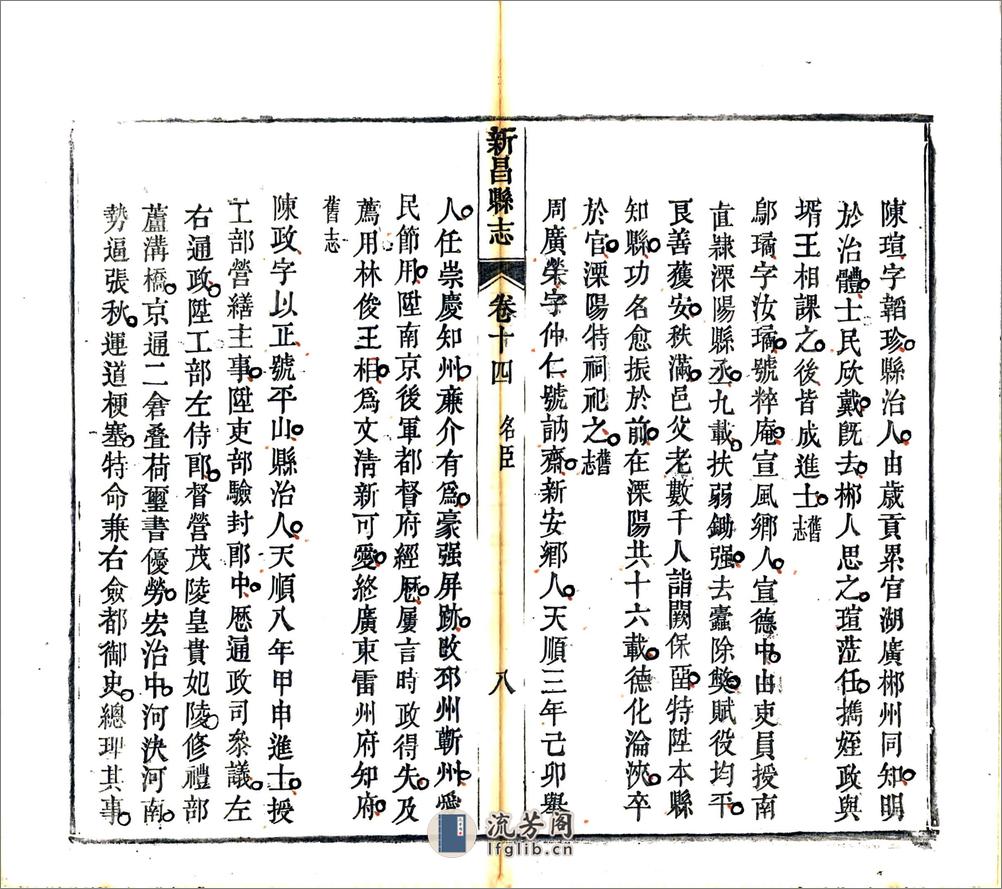 陳瑄字韜珍縣治人由歲貢累官湖廣郴州同知明
於治體士民欣戴既去郴人思之瑄蒞任携姪政與
壻王相課之後皆成進士舊志
鄔璚字汝璚號粹庵宣風鄉人宣德中由吏員授南
直隸溧陽縣丞九載扶弱鋤强去蠹除獘賦役均平
民善獲安秩滿邑父老數千人詣闕保畱特陞本縣
知縣功名愈振於前在溧陽共十六載德化淪浹卒
於官溧陽特祠祀之舊志
周廣榮字仲仁號訥齋新安鄉人天順三年己卯舉
新昌縣志
卷十四
名臣
八
人任崇慶知州亷介有爲豪强屏跡改邳州蘄州愛
民節用陞南京後軍都督府經歷屢言時政得失及
薦用林俊王相爲文清新可愛終廣東雷州府知府
舊志
陳政字以正號平山縣治人天順八年甲申進士授
工部營繕主事陞吏部驗封郎中歷通政司參議左
右通政陞工部左侍郎督營茂陵皇貴妃陵修禮部
蘆溝橋京通二倉叠荷璽書優勞宏治中河決河南
勢逼張秋運道梗塞特命兼右僉都御史總理其事
流芳阁
lfglib.cn